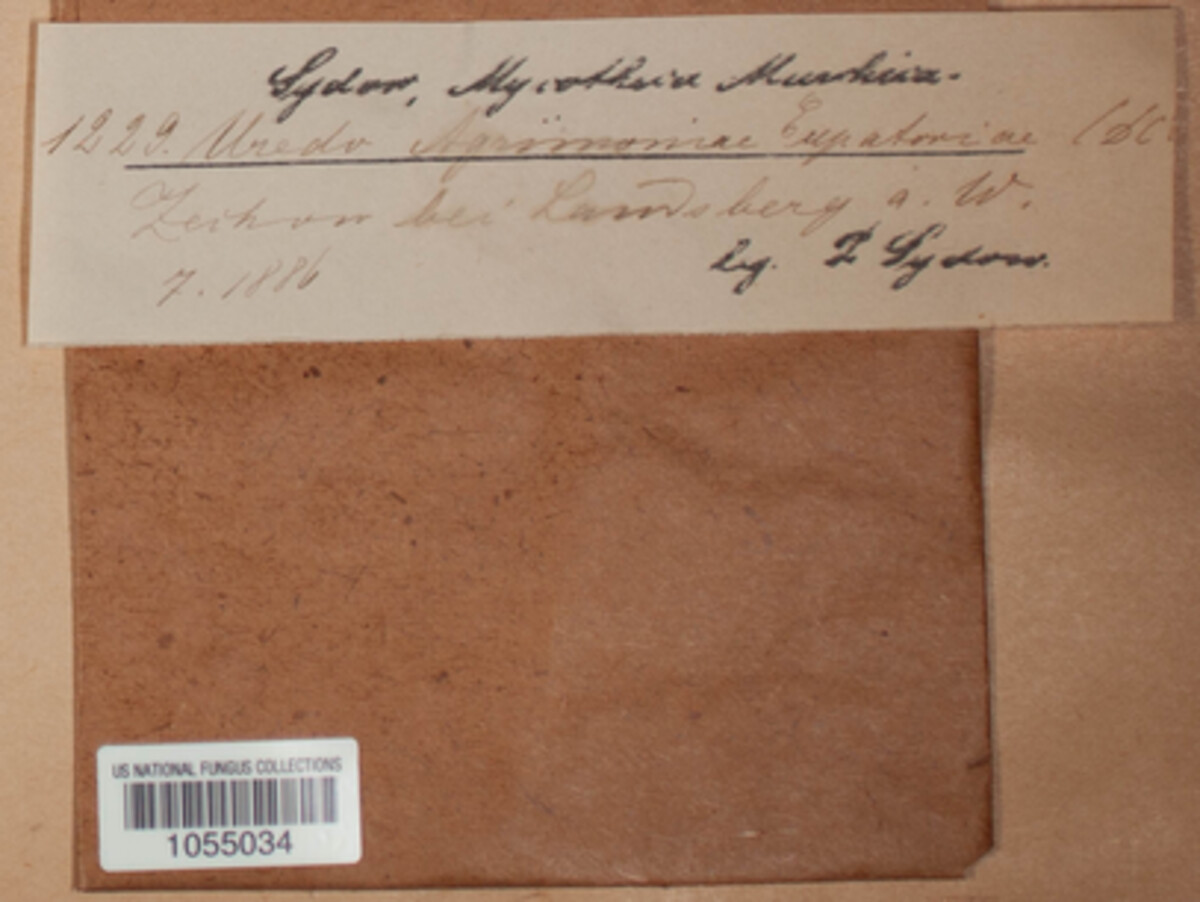 Sydow, Mycotheca Marchica.
1229. Uredo Agrimoniae Eupatoriae (DC
Zechow bei Landsberg a. W.
7. 1886
leg. P Sydow.
US NATIONAL FUNGUS COLLECTIONS
1055034